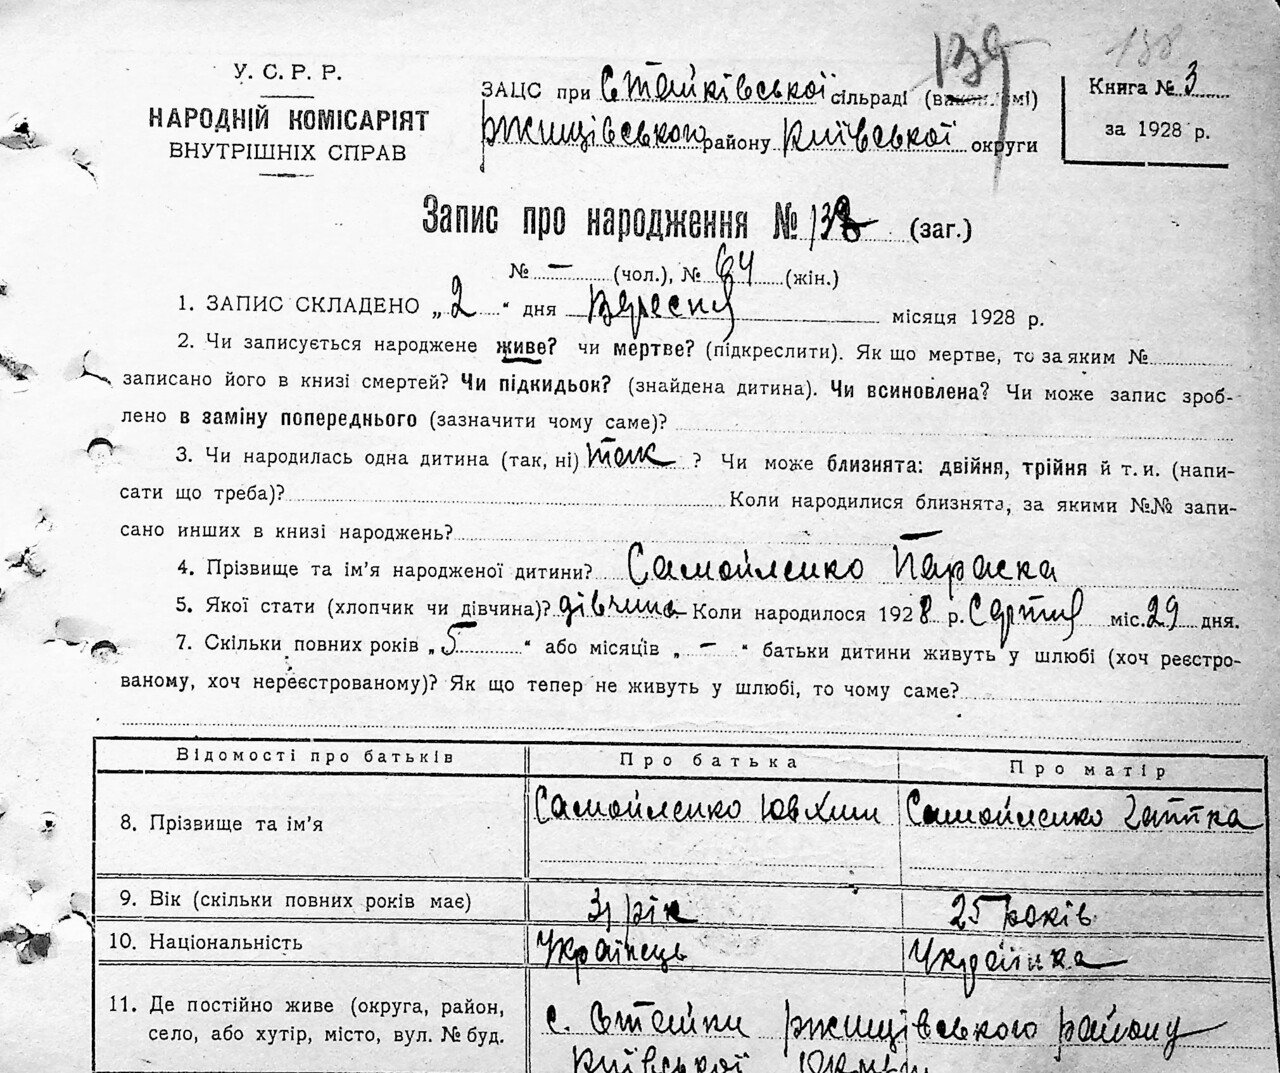 139 138
У. С. Р. Р.
НАРОДНІЙ КОМІСАРІЯТ
ВНУТРІШНІХ СПРАВ
ЗАЦС при Стайківської сільраді (викон.    мі)
Ржищівського району Київської округи
Книга № 3
за 1928 р.
Запис про народження № 138 (заг.)
№ — (чол.), № 64 (жін.)
1. ЗАПИС СКЛАДЕНО „2“ дня Вересня місяця 1928 р.
2. Чи записується народжене живе? чи мертве? (підкреслити). Як що мертве, то за яким №
записано його в книзі смертей? Чи підкидьок? (знайдена дитина). Чи всиновлена? Чи може запис зроб-
лено в заміну попереднього (зазначити чому саме)?
3. Чи народилась одна дитина (так, ні) так ? Чи може близнята: двійня, трійня й т. и. (напи-
сати що треба)? Коли народилися близнята, за якими №№ запи-
сано инших в книзі народжень? —
4. Прізвище та ім'я народженої дитини? Самойленко Параска
5. Якої стати (хлопчик чи дівчина)? дівчина Коли народилося 1928 р. Серпня міс. 29 дня.
7. Скільки повних років „5“ або місяців „—“ батьки дитини живуть у шлюбі (хоч реєстро-
ваному, хоч нереєстрованому)? Як що тепер не живуть у шлюбі, то чому саме?
Відомості про батьків Про батька Про матір
8. Прізвище та ім'я Самойленко Ювхим Самойленко Гапка
9. Вік (скільки повних років має) 31 рік 25 років
10. Національність Українець Українка
11. Де постійно живе (округа, район, с. Стайки Ржищівського району
село, або хутір, місто, вул. № буд. Київської Округи